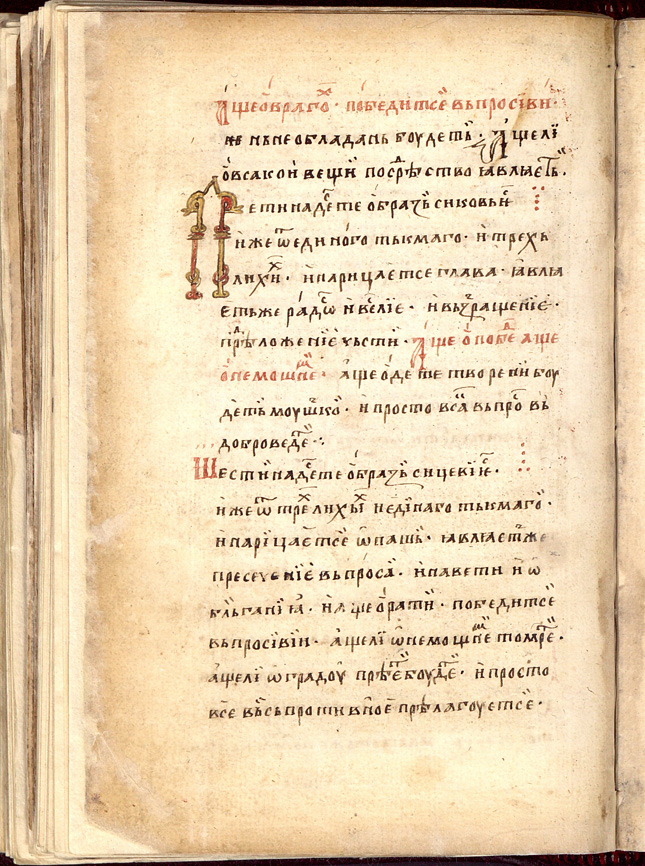 Аще ѡ враго҇х · побѣдитсе въпросівꙑ ·
нь не обладань боудеть · Аще лі
ѡ всакои вещи посрѣ҇дство ꙗвлꙗеть .
Пети надесте ѡбразъ сиковьи е҇
иже ѿ единого тькмаго · и трехь
лихи҇х · и нарицаетсе глава · ꙗвлꙗ
еть же радо҇с и веселіе · и възвращеніе ·
прѣ҇дложеніе чьсти · Аще ѡ побѣ҇д аще
ѡ немощнѣ҇м · аще ѡ дете творети боу
деть моу҇жско · и просто вса въпро҇с вь
добро веде҇т ·:
Шести надесте ѡбразъ сицевіи е҇ ·
иже ѿ тре҇х лихꙑ҇х и единаго тькмаго ·
и нарицаетсе ѡпашь · ꙗвлꙗе҇т же
пресеченіе въпроса · и навети и ѡ
бльганіꙗ · и аще ѡ рати · побѣдитсе
въпросівіи · аще лі ѡ немощнѣ҇м то мре҇т ·
аще лі ѡ градоу прѣе҇т боуде҇т · и просто
все въсь противное прѣлагоуетсе ·